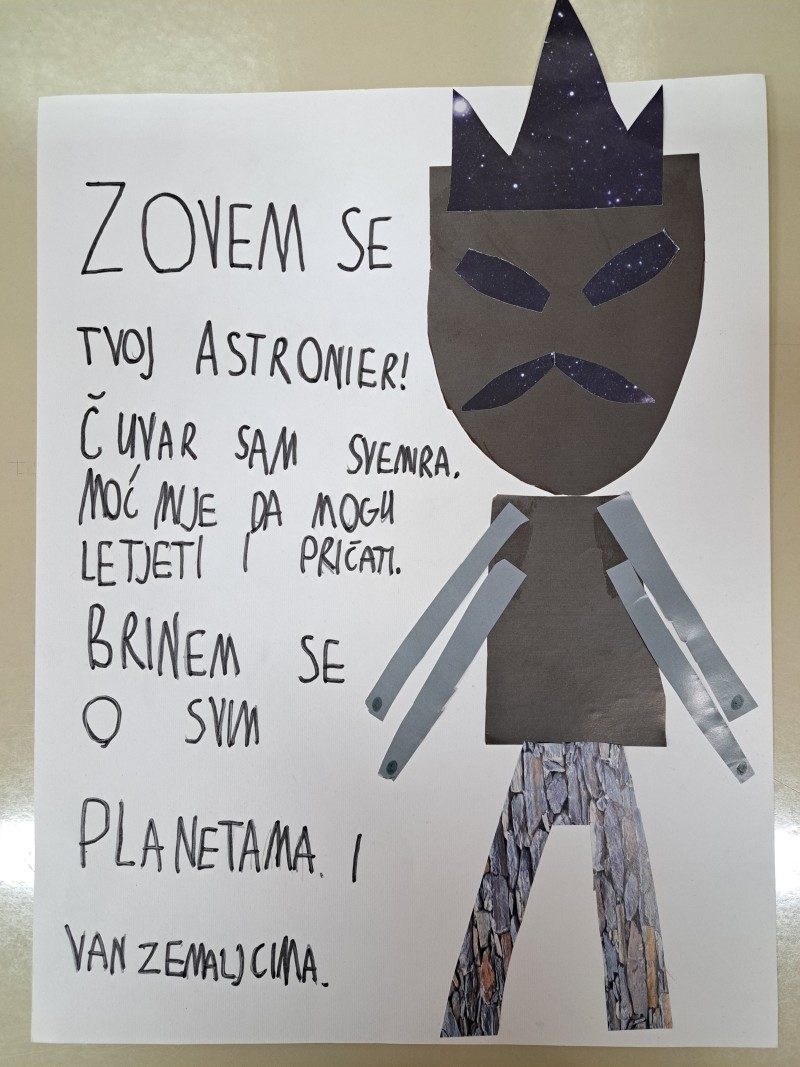 ZOVEM SE
TVOJ ASTRONIER!
ČUVAR SAM SVEMRA.
MOĆ MIJE DA MOGU
LETJETI I PRIČATI.
BRINEM SE
O SVIM
PLANETAMA. I
VANZEMALJCIMA.